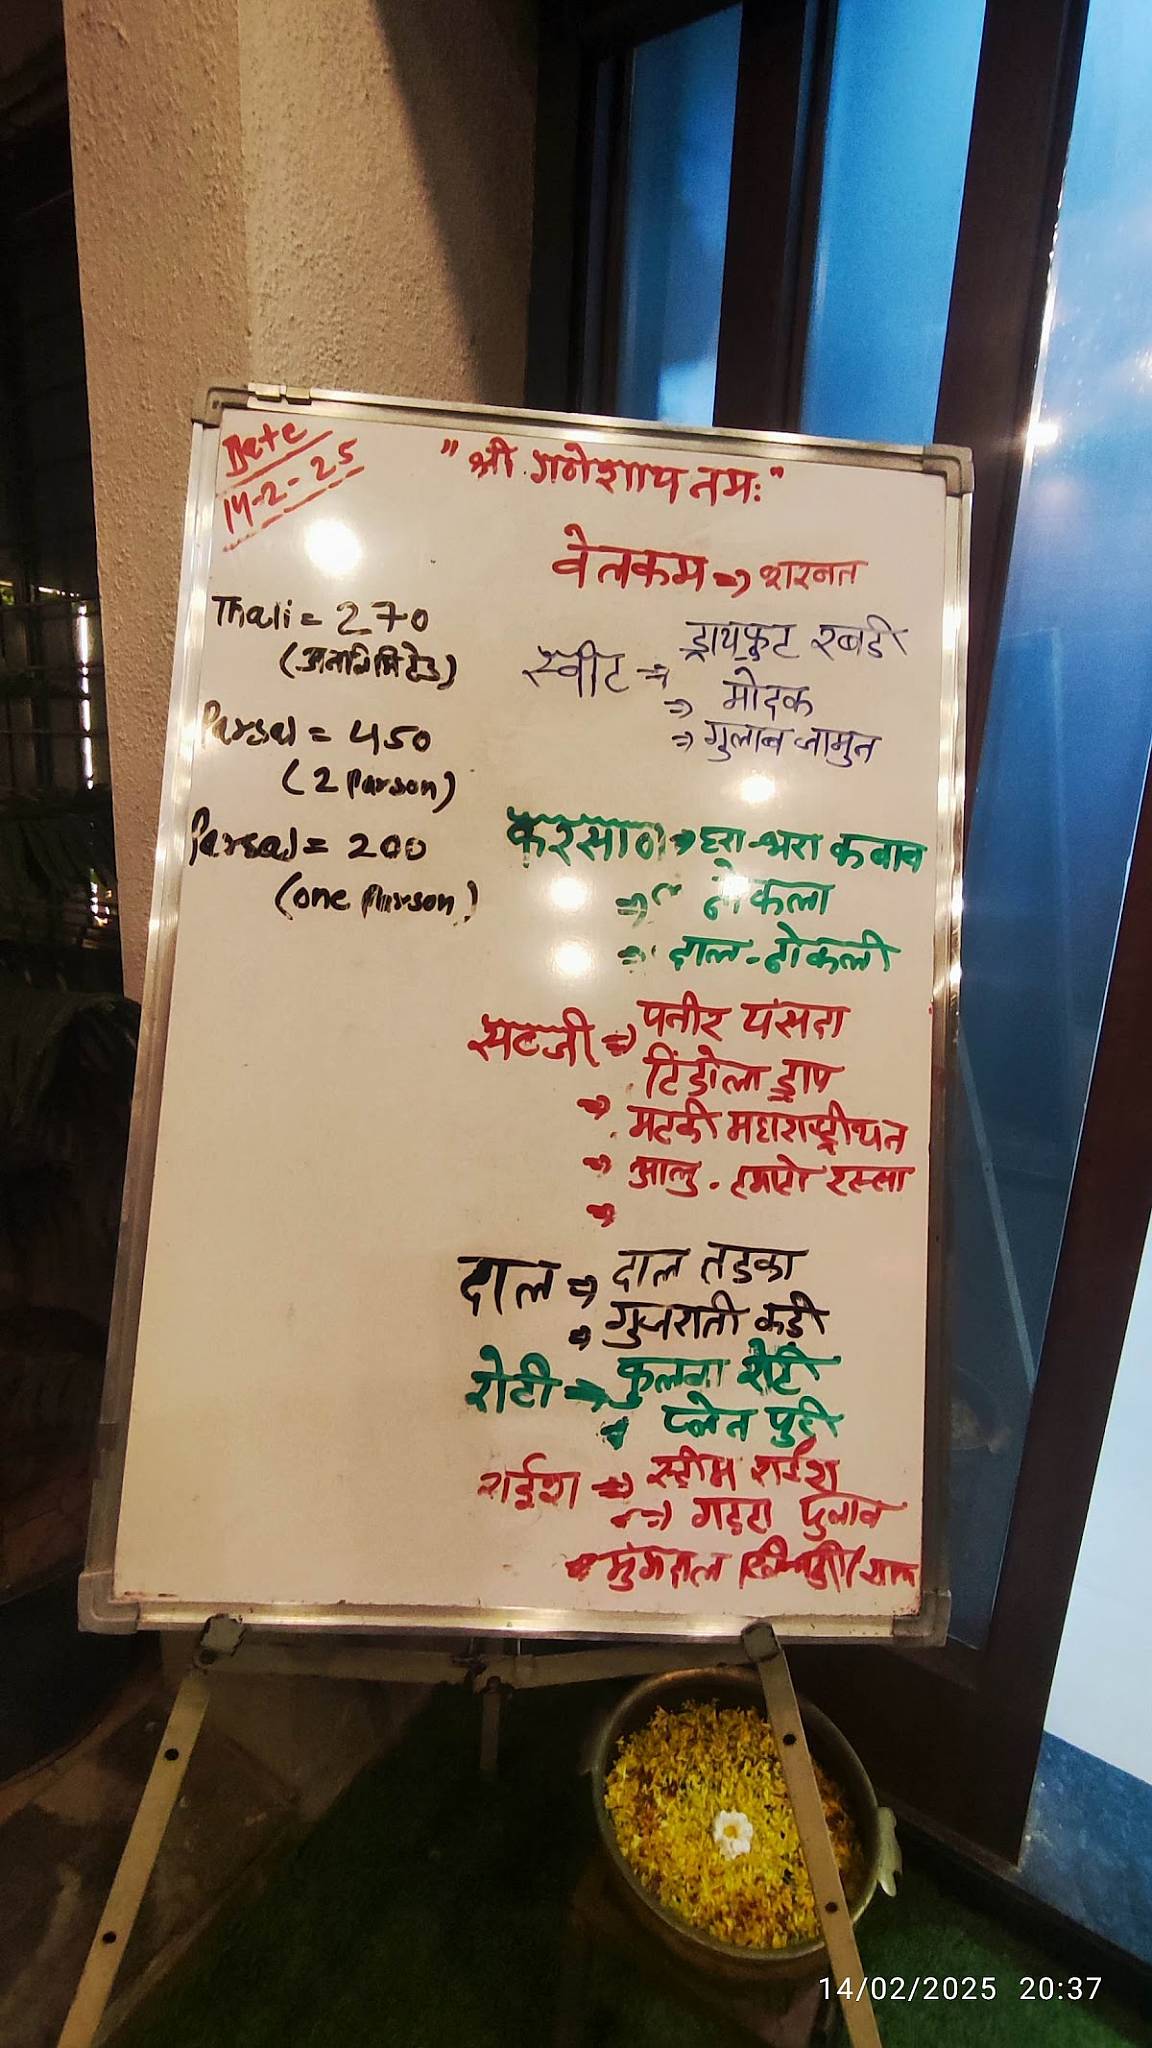 Date
14-2-25
"श्री गणेशाय नमः"
वेलकम ⇒ शरबत
Thali = 270
(अनलिमिटेड)
Parsal = 450
(2 Parson)
Parsal = 200
(one Parson)
स्वीट ⇒ ड्रायफ्रुट रबडी
⇒ मोदक
⇒ गुलाब जामुन
फरसाण ⇒ हरा-भरा कबाब
⇒ ढोकला
⇒ दाल-ढोकली
सब्जी ⇒ पनीर पसंदा
टिंडोला ड्राय
⇒ मटकी महाराष्ट्रीयन
⇒ आलु. टमाटो रस्सा
⇒
दाल ⇒ दाल तडका
⇒ गुजराती कड़ी
रोटी ⇒ फुलका रोटी
⇒ प्लेन पुरी
राईश ⇒ स्टीम राईश
⇒ गट्टा पुलाव
⇒ मुंगदाल खिचड़ी/